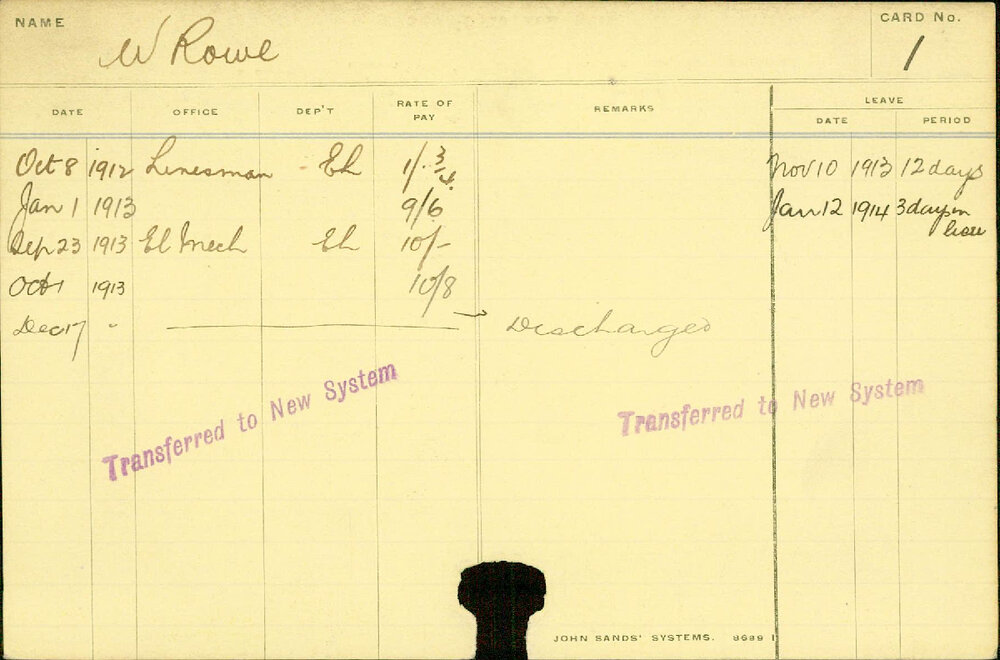 NAME W Rowe CARD No. 1
DATE OFFICE DEP'T RATE OF PAY REMARKS LEAVE DATE PERIOD
Oct 8 1912 Linesman - EL 1/. 3/4. Nov 10 1913 12 days
Jan 1 1913 9/6 Jan 12 1914 3 days in lieu
Sep 23 1913 El Mech EL 10/-
Oct 1 1913 10/8
Dec 17 " Discharged
Transferred to New System Transferred to New System
JOHN SANDS' SYSTEMS. 8689 1